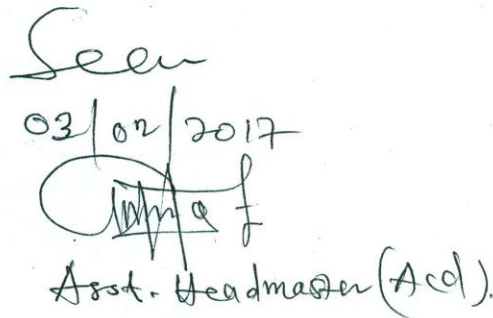 Seen
03/02/2017
Asst. Headmaster (Acd).